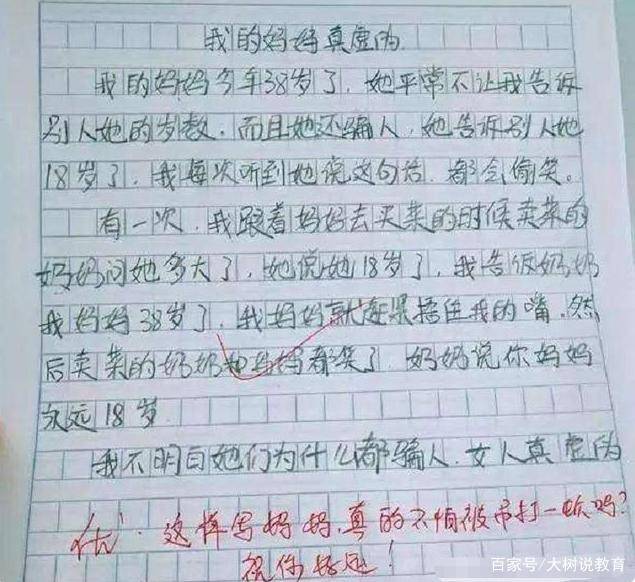 我的妈妈真虚伪
我的妈妈今年38岁了.她平常不让我告诉
别人她的岁数.而且她还骗人.她告诉别人她
18岁了.我每次听到她说这句话.都会偷笑。
有一次.我跟着妈妈去买菜的时候卖菜的
奶奶问她多大了,她说她18岁了,我告诉奶奶
我妈妈38岁了,我妈妈就赶紧捂住我的嘴.然
后卖菜的奶奶和妈妈都笑了.奶奶说你妈妈
永远18岁.
我不明白她们为什么都骗人.女人真虚伪
优.这样写妈妈.真的不怕被吊打一顿吗?
祝你好运!
百家号/大树说教育